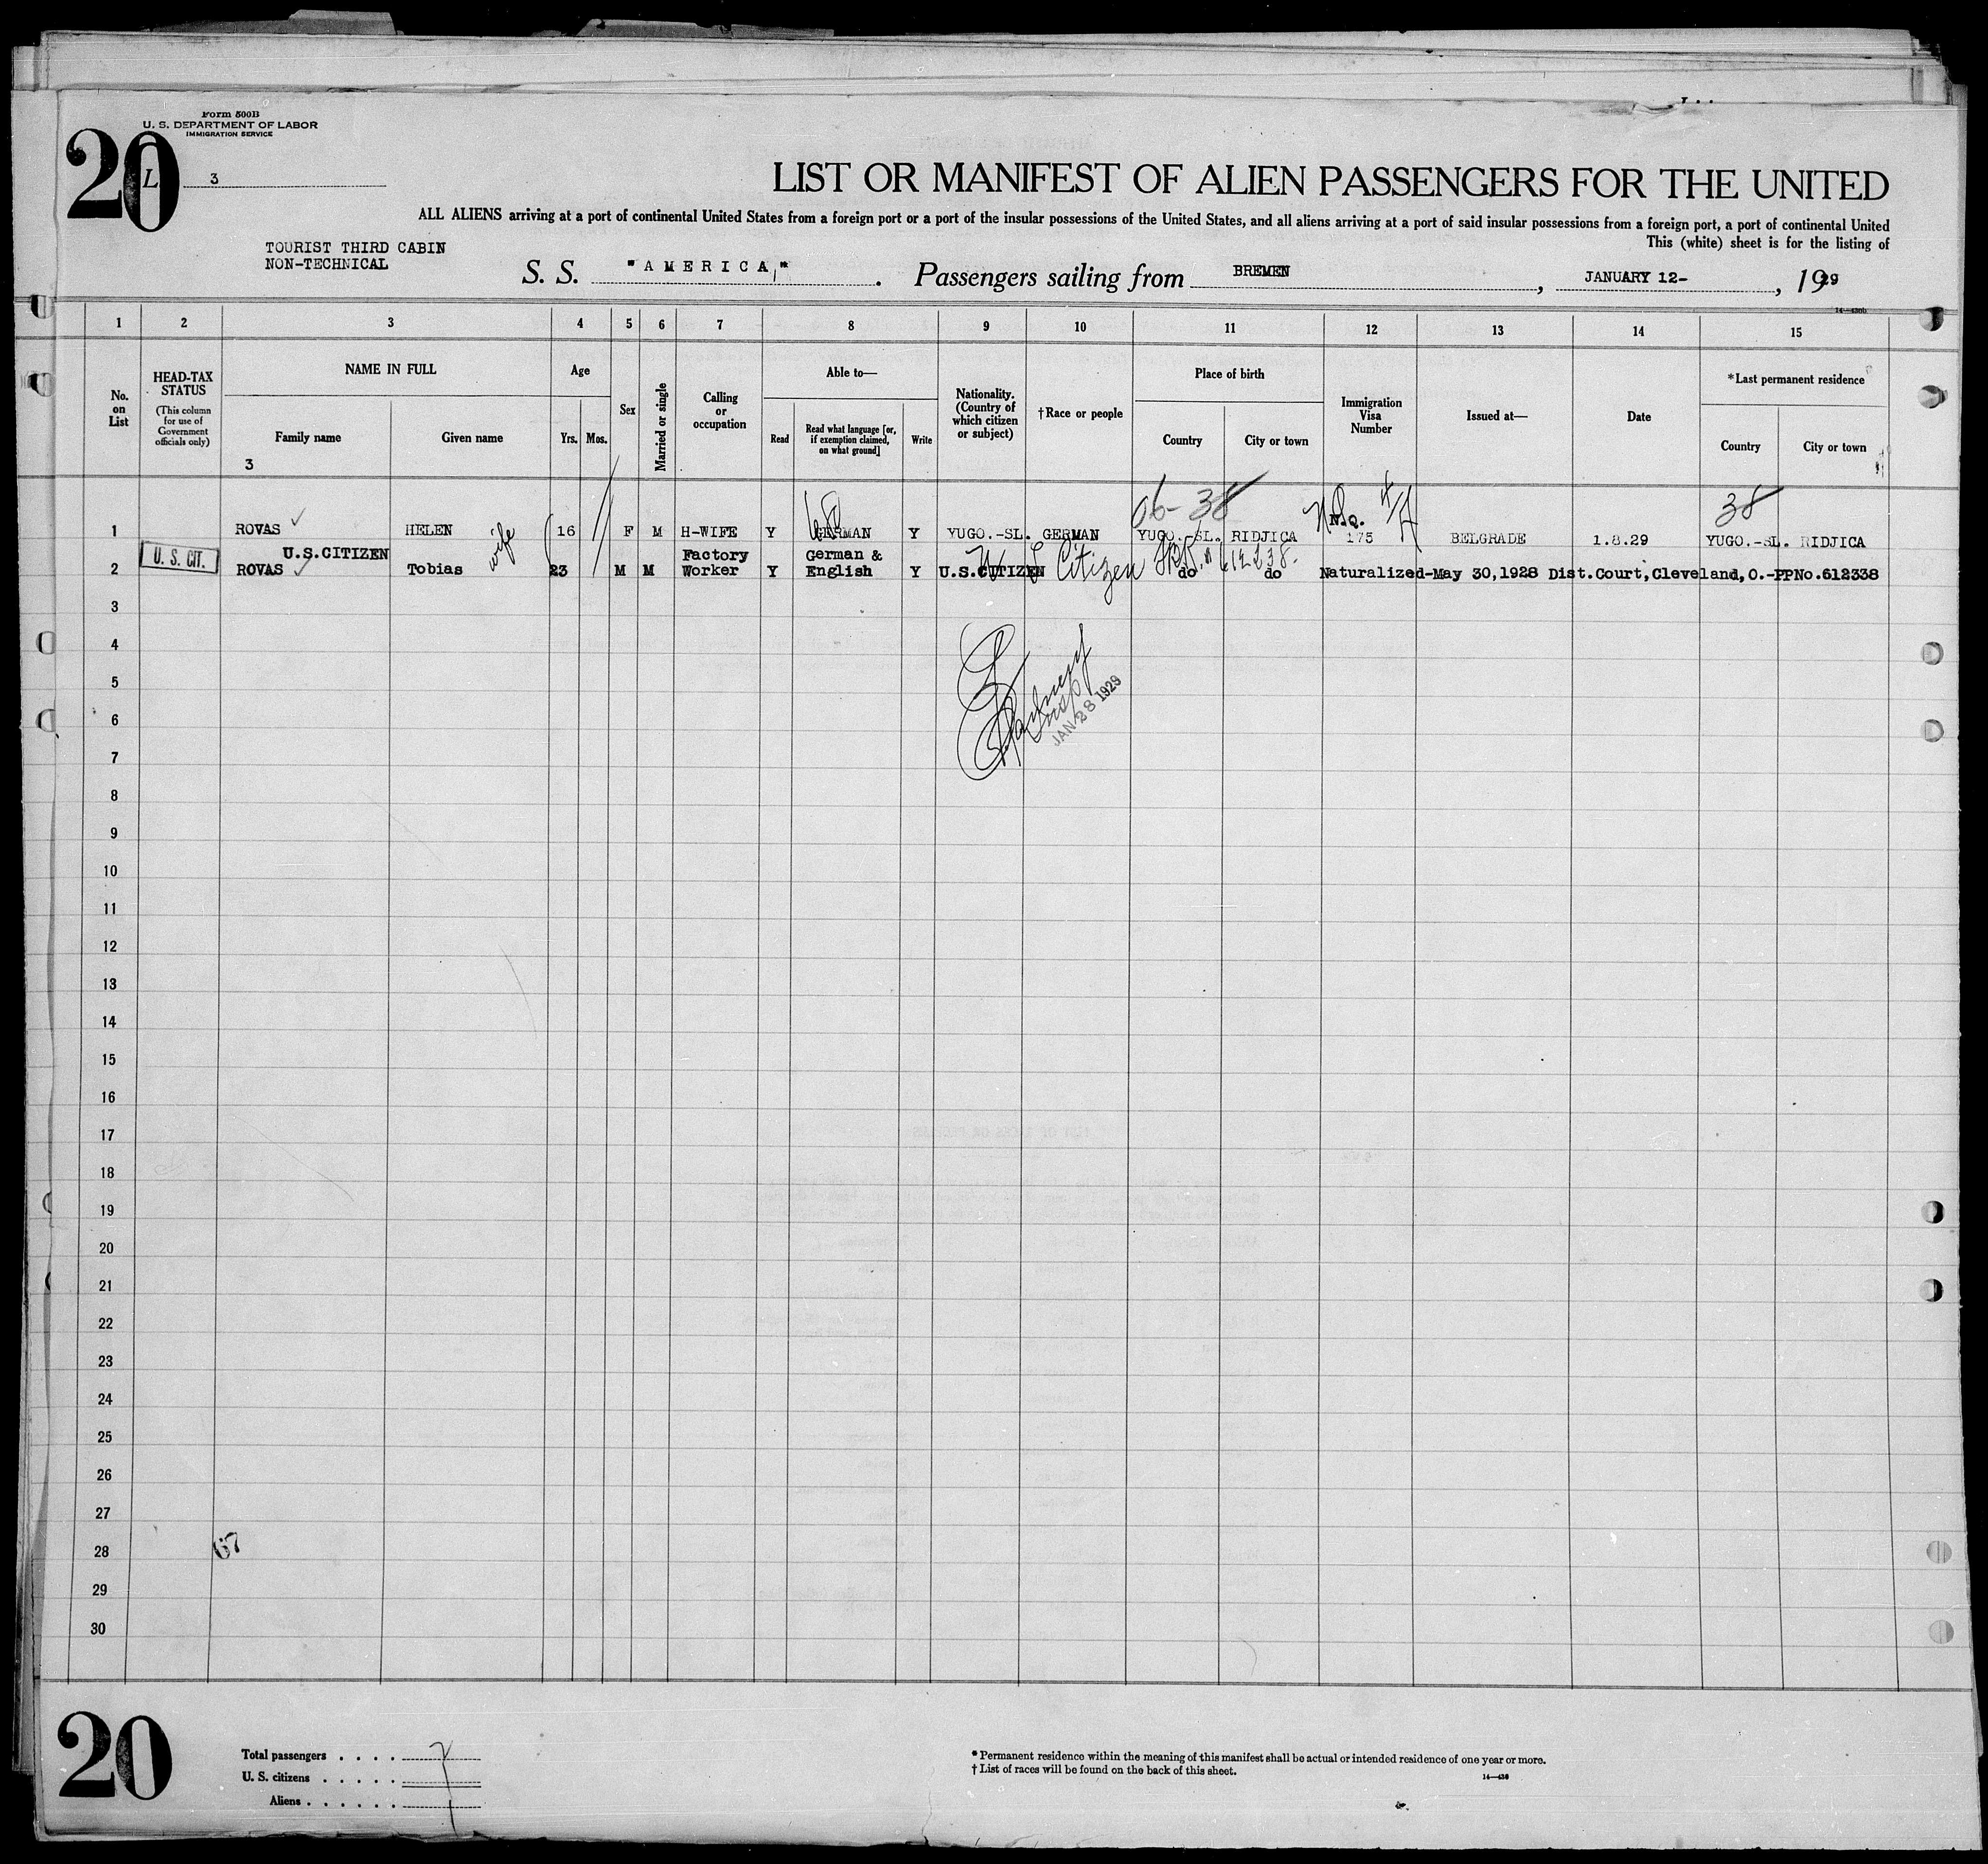 Form 500B
U. S. DEPARTMENT OF LABOR
IMMIGRATION SERVICE
20
L 3
LIST OR MANIFEST OF ALIEN PASSENGERS FOR THE UNITED
ALL ALIENS arriving at a port of continental United States from a foreign port or a port of the insular possessions of the United States, and all aliens arriving at a port of said insular possessions from a foreign port, a port of continental United
This (white) sheet is for the listing of
TOURIST THIRD CABIN
NON-TECHNICAL
S. S. "AMERICA," . Passengers sailing from BREMEN , JANUARY 12- , 1929
14—430b
1 2 3 4 5 6 7 8 9 10 11 12 13 14 15
No. on List
HEAD-TAX STATUS
(This column for use of Government officials only)
NAME IN FULL
Family name Given name
3
Age
Yrs. Mos.
Sex
Married or single
Calling or occupation
Able to—
Read
Read what language [or, if exemption claimed, on what ground]
Write
Nationality. (Country of which citizen or subject)
†Race or people
Place of birth
Country City or town
Immigration Visa Number
Issued at—
Date
*Last permanent residence
Country City or town
06-38 38
1 ROVAS HELEN wife 16 F M H-WIFE Y GERMAN Y YUGO.-SL. GERMAN YUGO.-SL. RIDJICA N.Q. 175 BELGRADE 1.8.29 YUGO.-SL. RIDJICA
U. S. CIT. U.S.CITIZEN Factory German &
2 ROVAS Tobias 23 M M Worker Y English Y U.S.CITIZEN Citizen 612338. do do Naturalized-May 30,1928 Dist.Court,Cleveland,O.-PPNo.612338
3
4
5
6
JAN 28 1929
7
8
9
10
11
12
13
14
15
16
17
18
19
20
21
22
23
24
25
26
27
28
67
29
30
20
Total passengers . . . .
U. S. citizens . . . . .
Aliens . . . . . .
* Permanent residence within the meaning of this manifest shall be actual or intended residence of one year or more.
† List of races will be found on the back of this sheet.
14—430